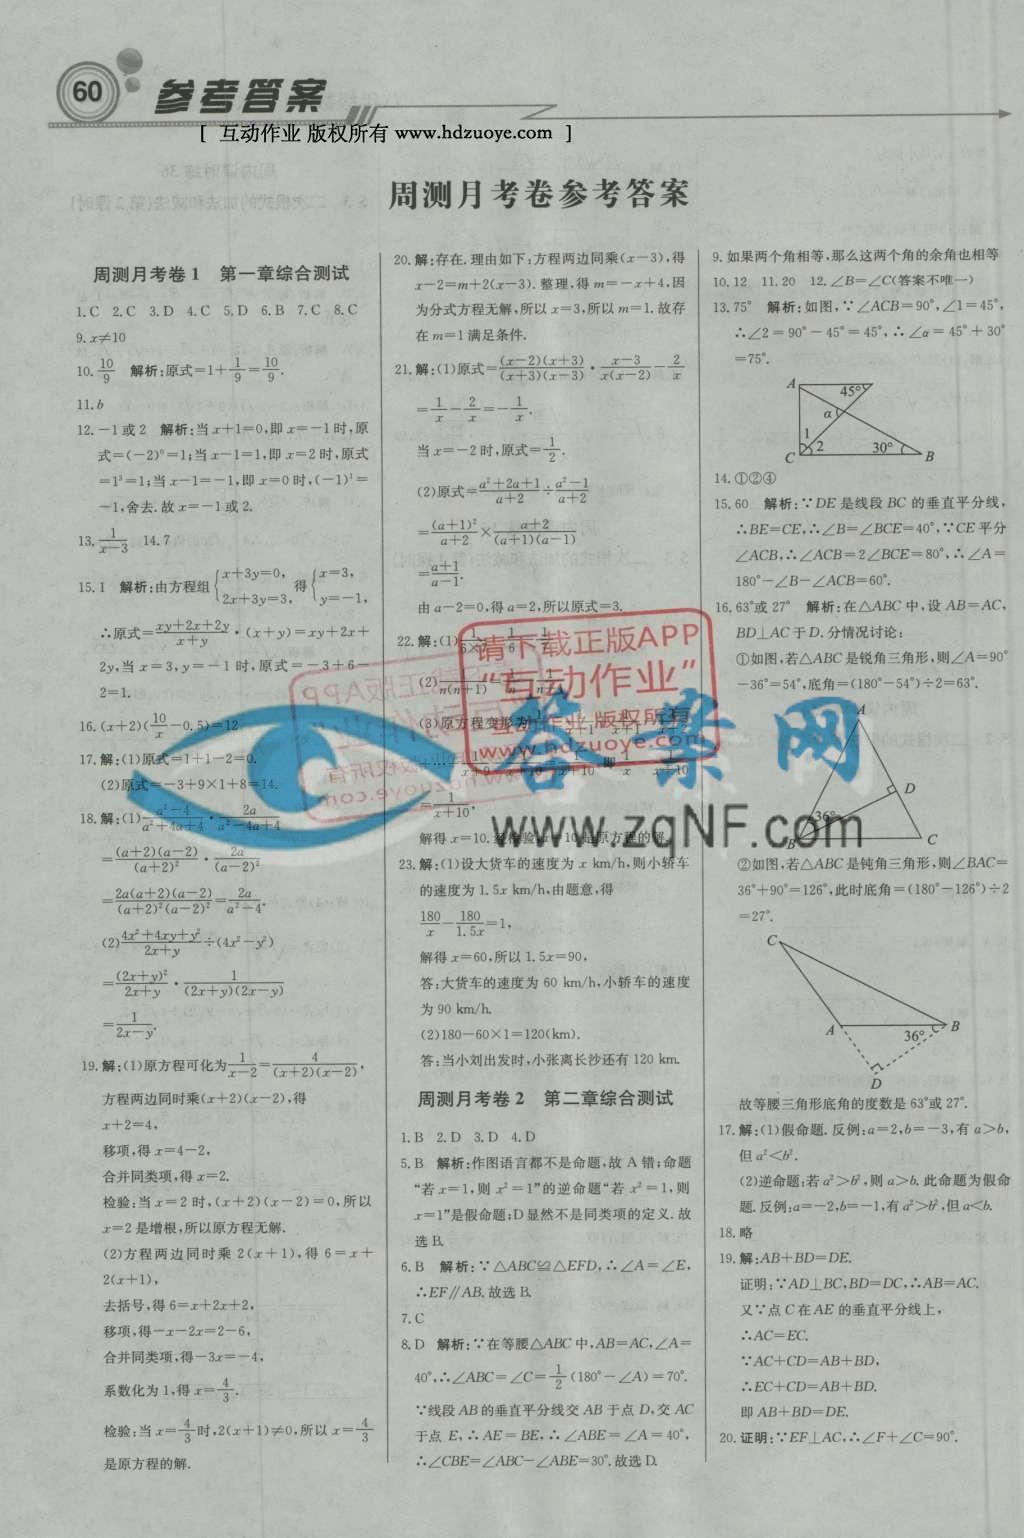 60 参考答案
[ 互动作业 版权所有 www.hdzuoye.com ]
周测月考卷参考答案
周测月考卷1 第一章综合测试
1. C 2. C 3. D 4. C 5. D 6. B 7. C 8. C
9. x≠10
10. 10/9 解析:原式=1+1/9=10/9.
11. b
12. -1或2 解析:当x+1=0,即x=-1时,原
式=(-2)⁰=1;当x-1=1,即x=2时,原式
=1³=1;当x-1=-1,即x=0时,(-1)¹=
-1,舍去.故x=-1或2.
13. 1/(x-3) 14. 7
15. 1 解析:由方程组{x+3y=0, 2x+3y=3, 得{x=3, y=-1,
∴原式=(xy+2x+2y)/(x+y)·(x+y)=xy+2x+
2y,当x=3,y=-1时,原式=-3+6-
2=1.
16. (x+2)(10/x-0.5)=12
17. 解:(1)原式=1+1-2=0.
(2)原式=-3+9×1+8=14.
18. 解:(1)(a²-4)/(a²+4a+4)·2a/(a²-4a+4)
=(a+2)(a-2)/(a+2)²·2a/(a-2)²
=2a(a+2)(a-2)/(a+2)²(a-2)²=2a/(a²-4).
(2)(4x²+4xy+y²)/(2x+y)÷(4x²-y²)
=(2x+y)²/(2x+y)·1/(2x+y)(2x-y)
=1/(2x-y).
19. 解:(1)原方程可化为1/(x-2)=4/(x+2)(x-2),
方程两边同时乘(x+2)(x-2),得
x+2=4,
移项,得x=4-2,
合并同类项,得x=2.
检验:当x=2时,(x+2)(x-2)=0,所以
x=2是增根,所以原方程无解.
(2)方程两边同时乘2(x+1),得6=x+
2(x+1),
去括号,得6=x+2x+2,
移项,得-x-2x=2-6,
合并同类项,得-3x=-4,
系数化为1,得x=4/3.
检验:当x=4/3时,2(x+1)≠0,所以x=4/3
是原方程的解.
20. 解:存在.理由如下:方程两边同乘(x-3),得
x-2=m+2(x-3).整理,得m=-x+4,因
为分式方程无解,所以x=3,所以m=1.故存
在m=1满足条件.
21. 解:(1)原式=(x-2)(x+3)/(x+3)(x-3)·(x-3)/x(x-2)-2/x
=1/x-2/x=-1/x.
当x=-2时,原式=1/2.
(2)原式=(a²+2a+1)/(a+2)÷(a²-1)/(a+2)
=(a+1)²/(a+2)×(a+2)/(a+1)(a-1)
=(a+1)/(a-1).
由a-2=0,得a=2,所以原式=3.
22. 解:(1)1/(6×7)=1/6-1/7
(2)1/n(n+1)=1/n-1/(n+1)
(3)原方程变形为
=1/(x+10),
解得x=10.经检验,x=10是原方程的解.
23. 解:(1)设大货车的速度为x km/h,则小轿车
的速度为1.5x km/h,由题意,得
180/x-180/1.5x=1,
解得x=60,所以1.5x=90,
答:大货车的速度为60 km/h,小轿车的速度
为90 km/h.
(2)180-60×1=120(km).
答:当小刘出发时,小张离长沙还有120 km.
周测月考卷2 第二章综合测试
1. B 2. D 3. D 4. D
5. B 解析:作图语言都不是命题,故A错;命题
“若x=1,则x²=1”的逆命题“若x²=1,则
x=1”是假命题;D显然不是同类项的定义.故
选B.
6. B 解析:∵△ABC≌△EFD,∴∠A=∠E,
∴EF∥AB.故选B.
7. C
8. D 解析:∵在等腰△ABC中,AB=AC,∠A=
40°,∴∠ABC=∠C=1/2(180°-∠A)=70°.
∵线段AB的垂直平分线交AB于点D,交AC
于点E,∴AE=BE,∴∠ABE=∠A=40°,
∴∠CBE=∠ABC-∠ABE=30°.故选D.
9. 如果两个角相等,那么这两个角的余角也相等
10. 12 11. 20 12. ∠B=∠C(答案不唯一)
13. 75° 解析:如图,∵∠ACB=90°,∠1=45°,
∴∠2=90°-45°=45°,∴∠α=45°+30°
=75°.
A 45° α 1 2 30° C B
14. ①②④
15. 60 解析:∵DE是线段BC的垂直平分线,
∴BE=CE,∴∠B=∠BCE=40°,∵CE平分
∠ACB,∴∠ACB=2∠BCE=80°,∴∠A=
180°-∠B-∠ACB=60°.
16. 63°或27° 解析:在△ABC中,设AB=AC,
BD⊥AC于D.分情况讨论:
①如图,若△ABC是锐角三角形,则∠A=90°
-36°=54°,底角=(180°-54°)÷2=63°.
A D 36° B C
②如图,若△ABC是钝角三角形,则∠BAC=
36°+90°=126°,此时底角=(180°-126°)÷2
=27°.
C A 36° B D
故等腰三角形底角的度数是63°或27°.
17. 解:(1)假命题.反例:a=2,b=-3,有a>b,
但a²<b².
(2)逆命题:若a²>b²,则a>b.此命题为假命
题.反例:a=-2,b=-1,有a²>b²,但a<b.
18. 略
19. 解:AB+BD=DE.
证明:∵AD⊥BC,BD=DC,∴AB=AC.
又∵点C在AE的垂直平分线上,
∴AC=EC.
∵AC+CD=AB+BD,
∴EC+CD=AB+BD.
即AB+BD=DE.
20. 证明:∵EF⊥AC,∴∠F+∠C=90°.
请下载正版APP
“互动作业”
互动作业 版权所有
www.hdzuoye.com
答案网
www.zqNF.com